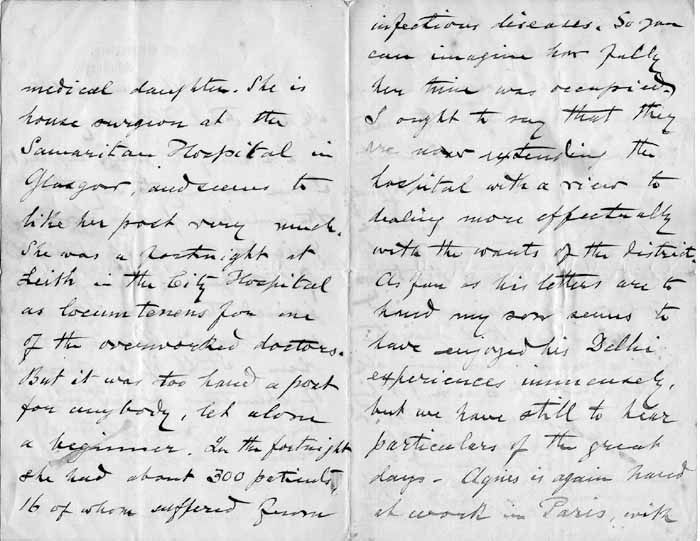 medical daughter. She is
house surgeon at the
Samaritan Hospital in
Glasgow, and seems to
like her post very much.
She was a fortnight at
Leith in the City Hospital
as locumtenens for one
of the overworked doctors.
But it was too hard a post
for anybody, let alone
a beginner. In the fortnight
she had about 300 patients,
16 of whom suffered from
infectious diseases. So you
can imagine how fully
her time was occupied.
I ought to say that they
are now extending the
hospital with a view to
dealing more effectually
with the wants of the district.
As far as his letters are to
hand my son seems to
have enjoyed his Delhi
experiences immensely,
but we have still to hear
particulars of the great
days - Agnes is again hard
at work in Paris, with